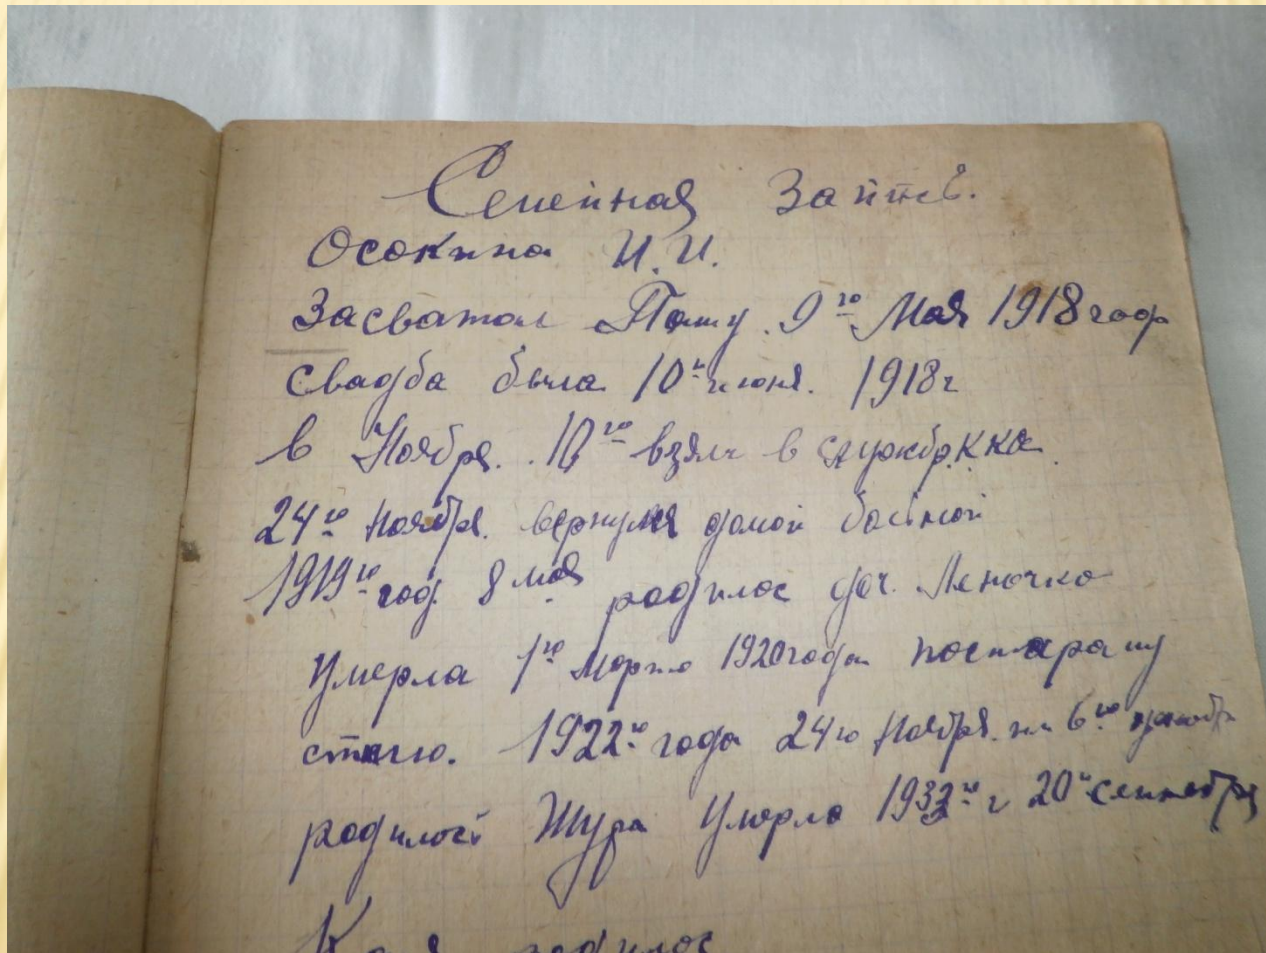 Семейная Запись.
Осокина И.И.
Засватал Пашу 9го Мая 1918 года
Свадьба была 10го июня. 1918г
в Ноябре. 10го взяли в службу
24го ноября. вернулся домой больной
1919го год. 8 мая родилос доч. Леночка
умерла 1го Марта 1920 года по старому
стилю. 1922го года 24го Ноября. или 6го декабр
родилась Шура Умерла 1932го г 20го сентября
родилос